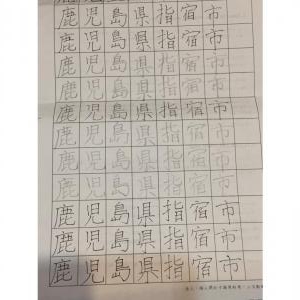 鹿児島県指宿市
鹿児島県指宿市
鹿児島県指宿市
鹿児島県指宿市
鹿児島県指宿市
鹿児島県指宿市
鹿児島県指宿市
鹿児島県指宿市
鹿児島県指宿市
鹿児島県指宿市